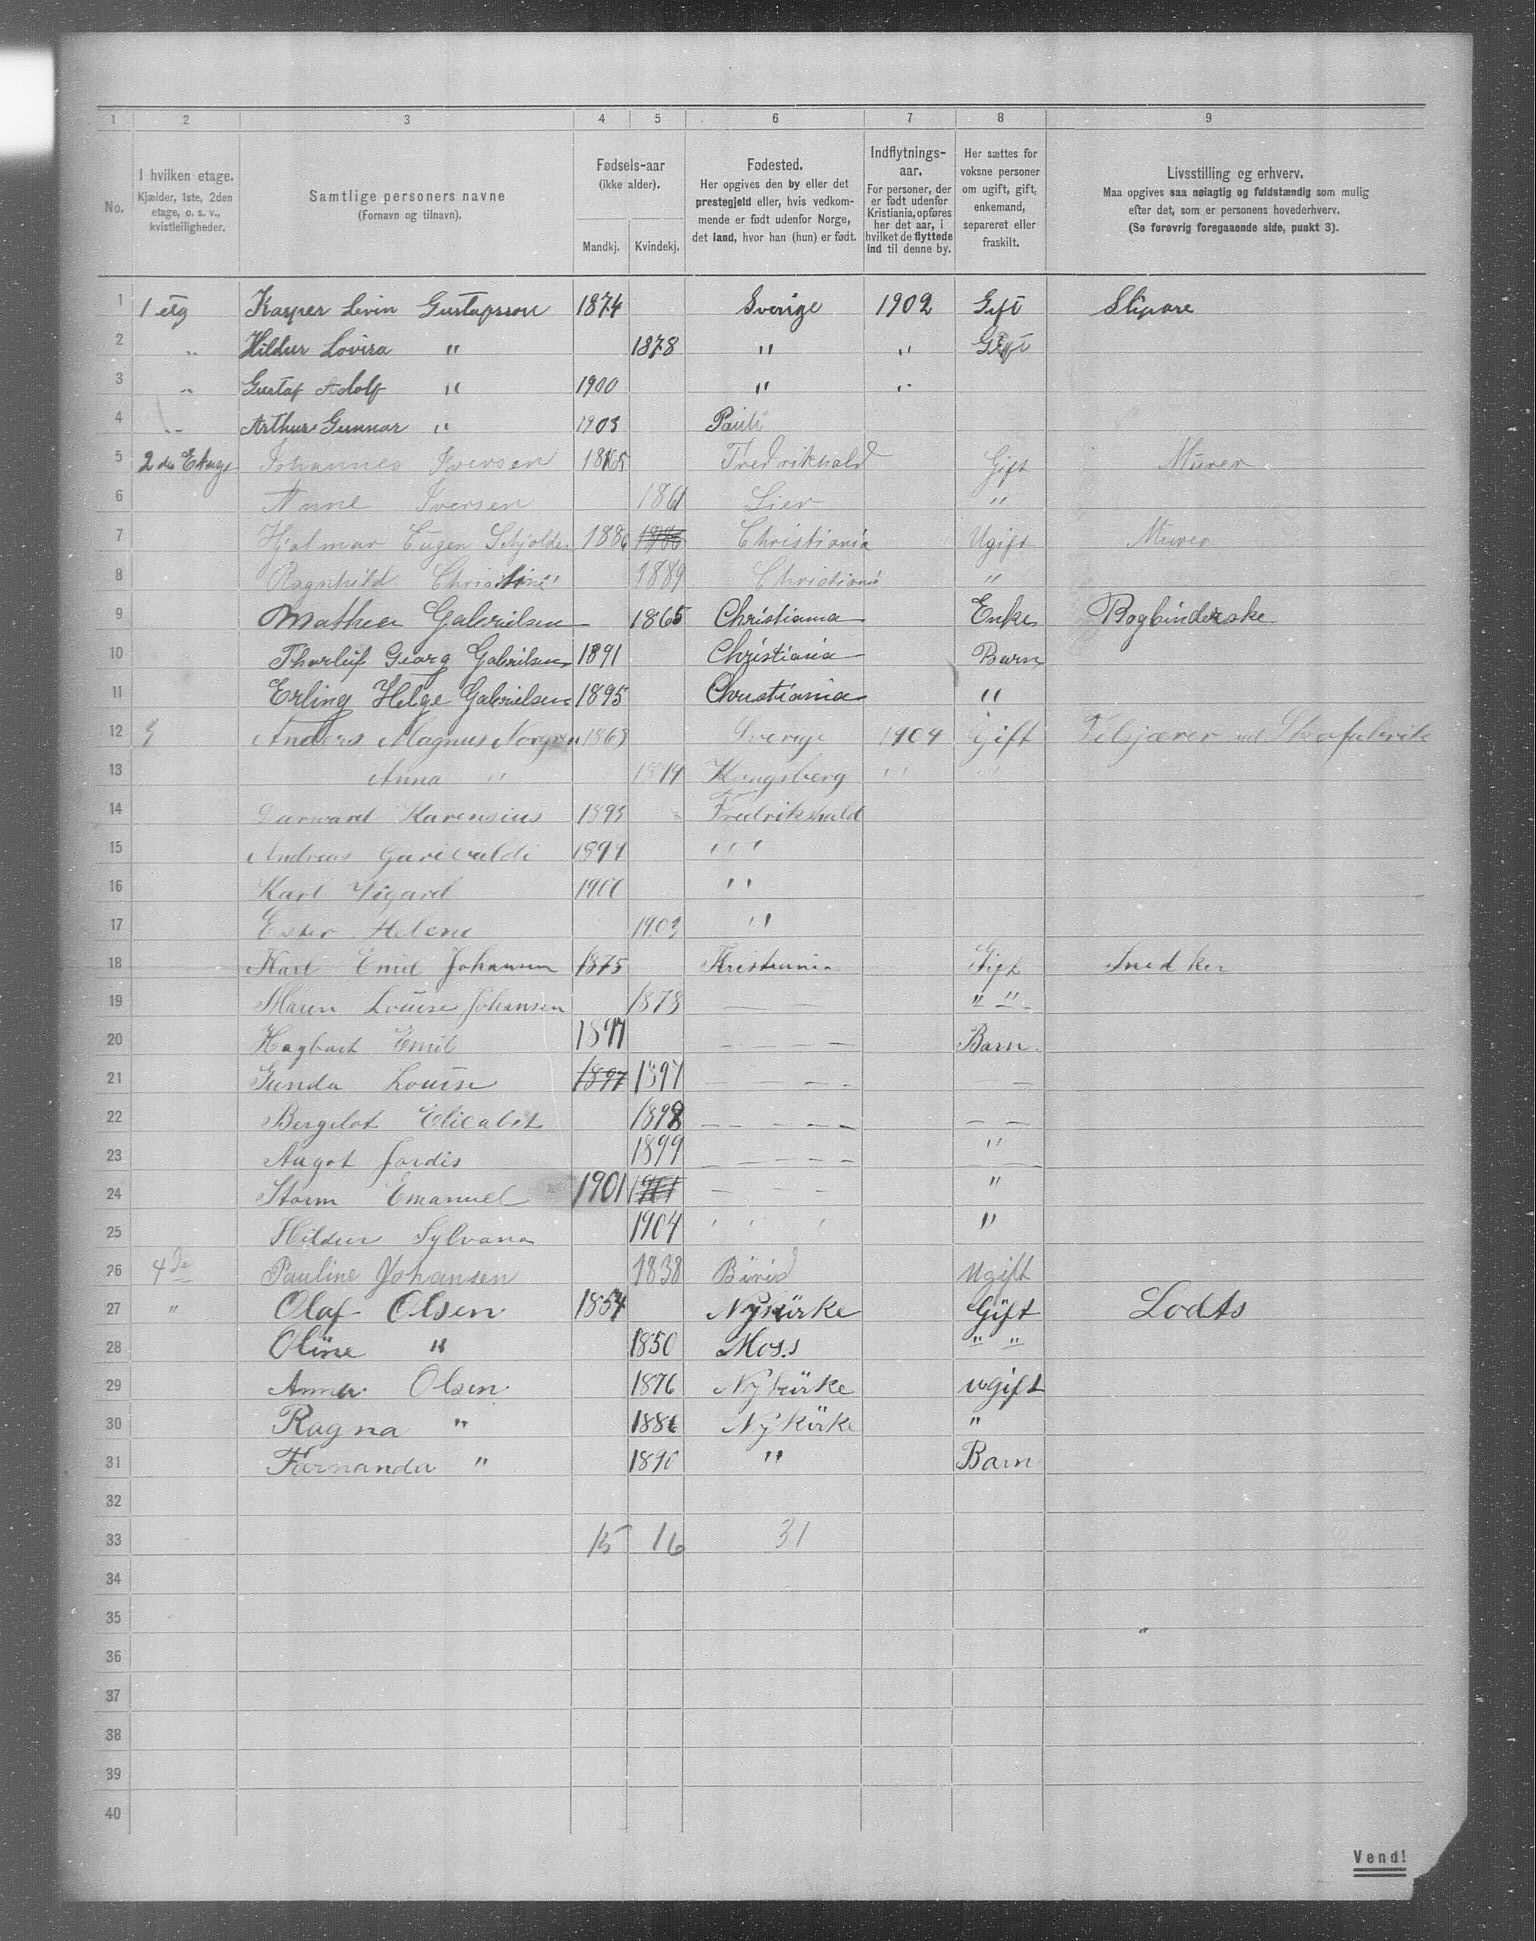 1 2 3 4 5 6 7 8 9
No. I hvilken etage. Kjælder, 1ste, 2den etage, o. s. v., kvistleiligheder. Samtlige personers navne (Fornavn og tilnavn). Fødsels-aar (ikke alder). Mandkj. Kvindekj. Fødested. Her opgives den by eller det prestegjeld eller, hvis vedkommende er født udenfor Norge, det land, hvor han (hun) er født. Indflytnings-aar. For personer, der er født udenfor Kristiania, opføres her det aar, i hvilket de flyttede ind til denne by. Her sættes for voksne personer om ugift, gift, enkemand, separeret eller fraskilt. Livsstilling og erhverv. Maa opgives saa nøiagtig og fuldstændig som mulig efter det, som er personens hovederhverv. (Se forøvrig foregaaende side, punkt 3).
1 1 etg Kasper Levin Gustafsson 1874 Sverige 1902 Gift Slipare
2 " Hildur Lovisa " 1878 " " Gift
3 " Gustaf Adolf " 1900 " "
4 " Arthur Gunnar " 1903 Pauls
5 2 den Etage Johannes Iversen 1865 Fredrikhald Gift Murer
6 Anne Iversen 1861 Lier "
7 Hjalmar Eugen Schjolder 1886 1886 Christiania Ugift Murer
8 Ragnhild Christine 1889 Christiania "
9 Mathea Gabrielsen 1865 Christiania Enke Bogbinderske
10 Thorleif Georg Gabrielsen 1891 Christiania Barn
11 Erling Helge Gabrielsen 1895 Christiania "
12 Anders Magnus Norgren 1869 Sverige 1904 Gift Tilsjærer ved Skofabrik
13 Anna " 1874 Kongsberg " "
14 Harensius 1895 Fredrikshald
15 Andreas Garibaldi 1897 " "
16 Karl Vigard 1900 "
17 Ester Helene 1903 "
18 Karl Emil Johansen 1875 Kristiania Gift Snedker
19 Maren Louise Johansen 1878 — — " "
20 Hagbart Emil 1897 — — — — Barn
21 Gunda Louise 1897 1897 — — — — —
22 Bergelot Elicabet 1898 — — — — — —
23 Augot Jordis 1899 — — — — "
24 Storm Emanuel 1901 1901 — — — "
25 Hildur Sylvana 1904 " " " "
26 4de Pauline Johansen 1838 Birid Ugift
27 " Olaf Olsen 1854 Nykirke Gift Lodts
28 Oline " 1850 Moss " "
29 Anna Olsen 1876 Nykirke ugift
30 Ragna " 1886 Nykirke "
31 Fernanda " 1890 " Barn
32
33 15 16 31
34
35
36
37
38
39
40
Vend!